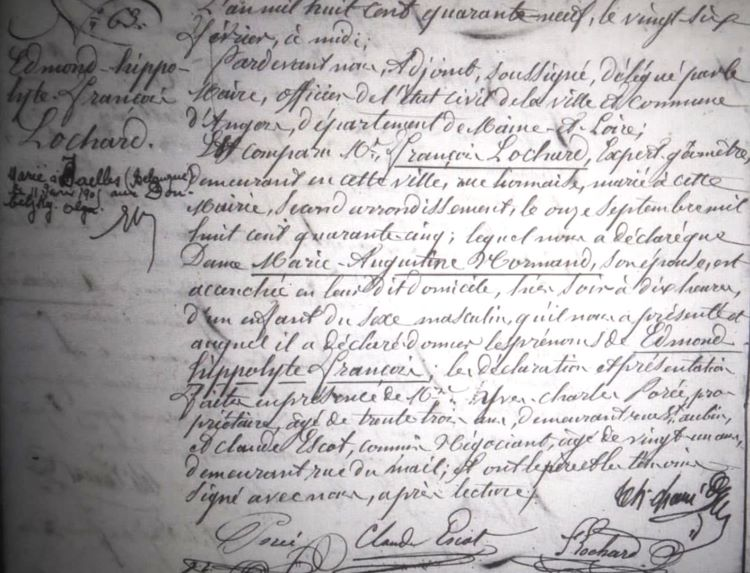 n° 63.
Edmond-hippo-
lyte-François
Lochard.
Marié à Ixelles (Belgique)
le 11 1905 aux
L'an mil huit cent quarante-neuf, le vingt-six
février, à midi;
Pardevant nous, Adjoint, soussigné, délégué par le
Maire, officier de l'état civil de la ville et commune
d'Angers, département de Maine-et-Loire;
Est comparu Mr. François Lochard, Expert géomètre,
demeurant en cette ville, rue, marié à cette
Mairie, second arrondissement, le onze septembre mil
huit cent quarante-cinq; lequel nous a déclaré que
Dame Marie-Augustine Normand, son épouse, est
accouchée en leur dit domicile, hier soir à dix heures,
d'un enfant du sexe masculin, qu'il nous a présenté et
auquel il a déclaré donner les prénoms de Edmond-
hippolyte-François; les déclaration et présentation
faites en présence de Mrs. Yves-charles Porée, pro-
priétaire, âgé de trente trois ans, demeurant rue St. aubin,
et Claude Escot, commis Négociant, âgé de vingt-un ans,
demeurant, rue du mail; et ont le père et les témoins
signé avec nous, après lecture.
Porée Claude Escot F Lochard